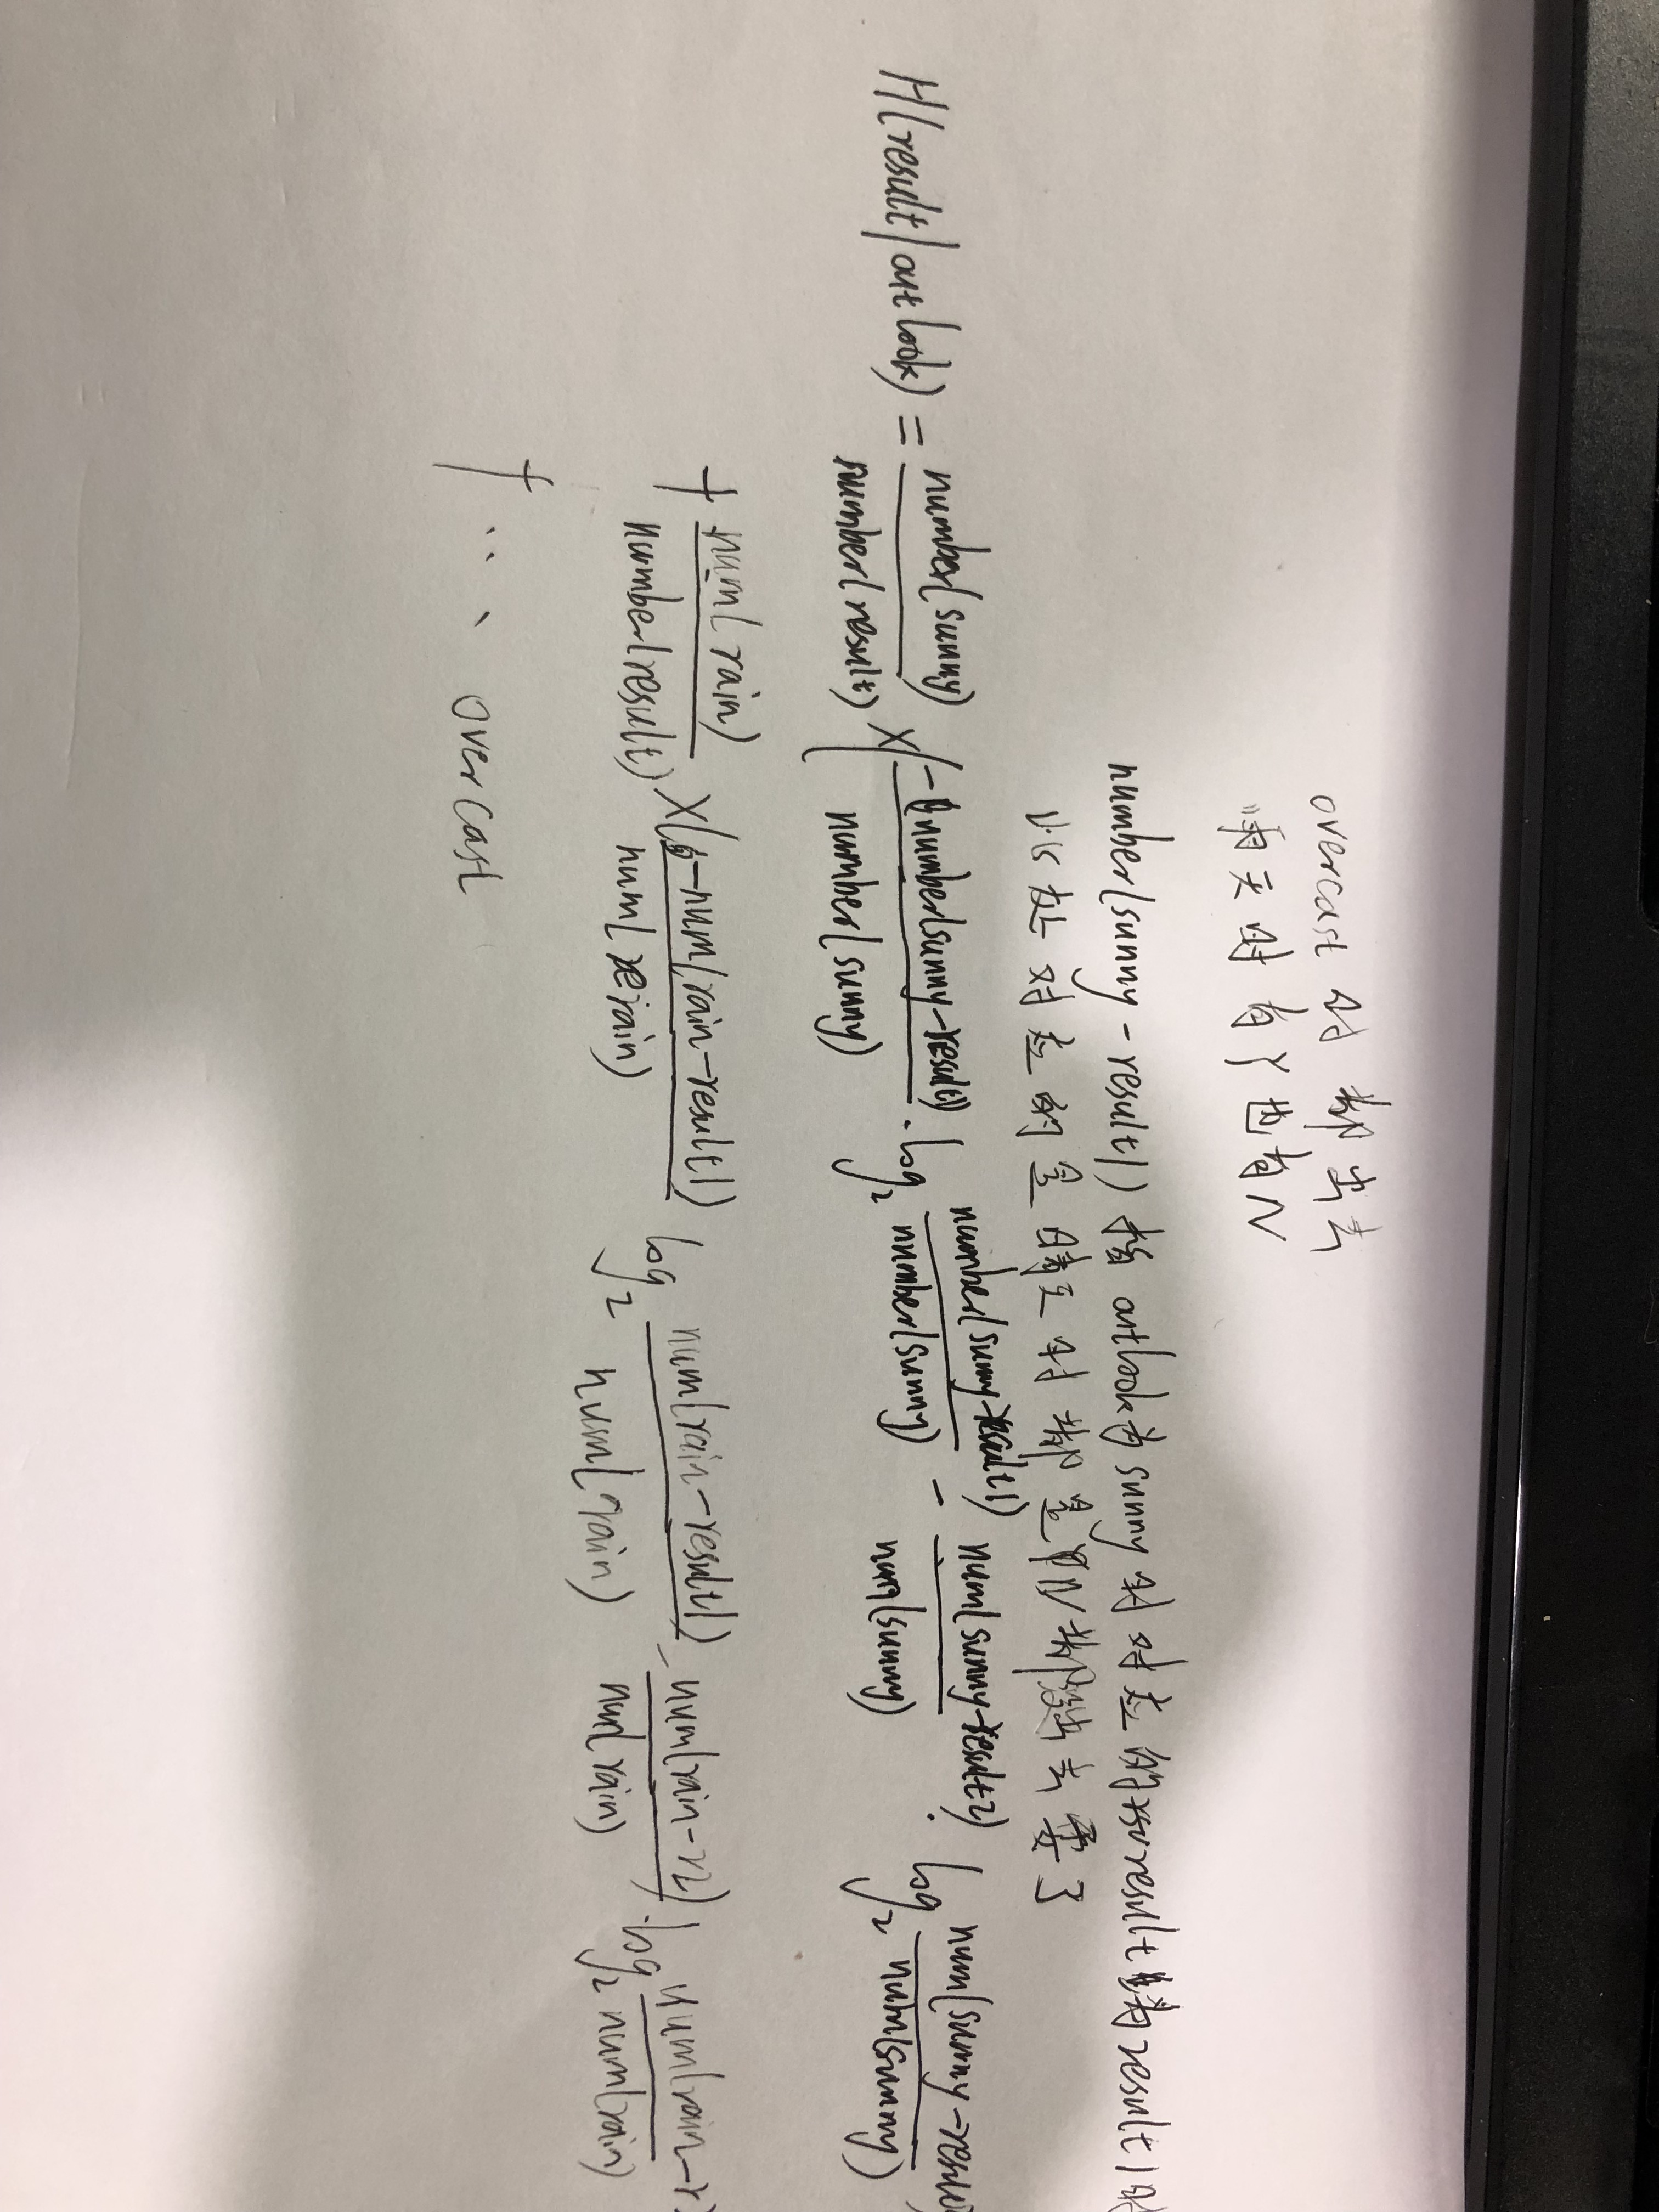 overcast 时 都 出去
雨天时 有 Y 也有 N
number(sunny-result1) 指 outlook为 sunny 时 对应的 result 为 result1
此处 对应 的 是 晴天 时 都 是 N 都没出去 耍了
H(result|outlook) = number(sunny) / number(result) × (- number(sunny-result1) / number(sunny) · log2 number(sunny-result1) / number(sunny) - num(sunny-result2) / num(sunny) · log2 num(sunny-resul / num(sunny)
+ num(rain) / number(result) × (- num(rain-result1) / num(rain) log2 num(rain-result1) / num(rain) - num(rain-r2) / num(rain) · log2 num(rain-r / num(rain)
+ ... overcast